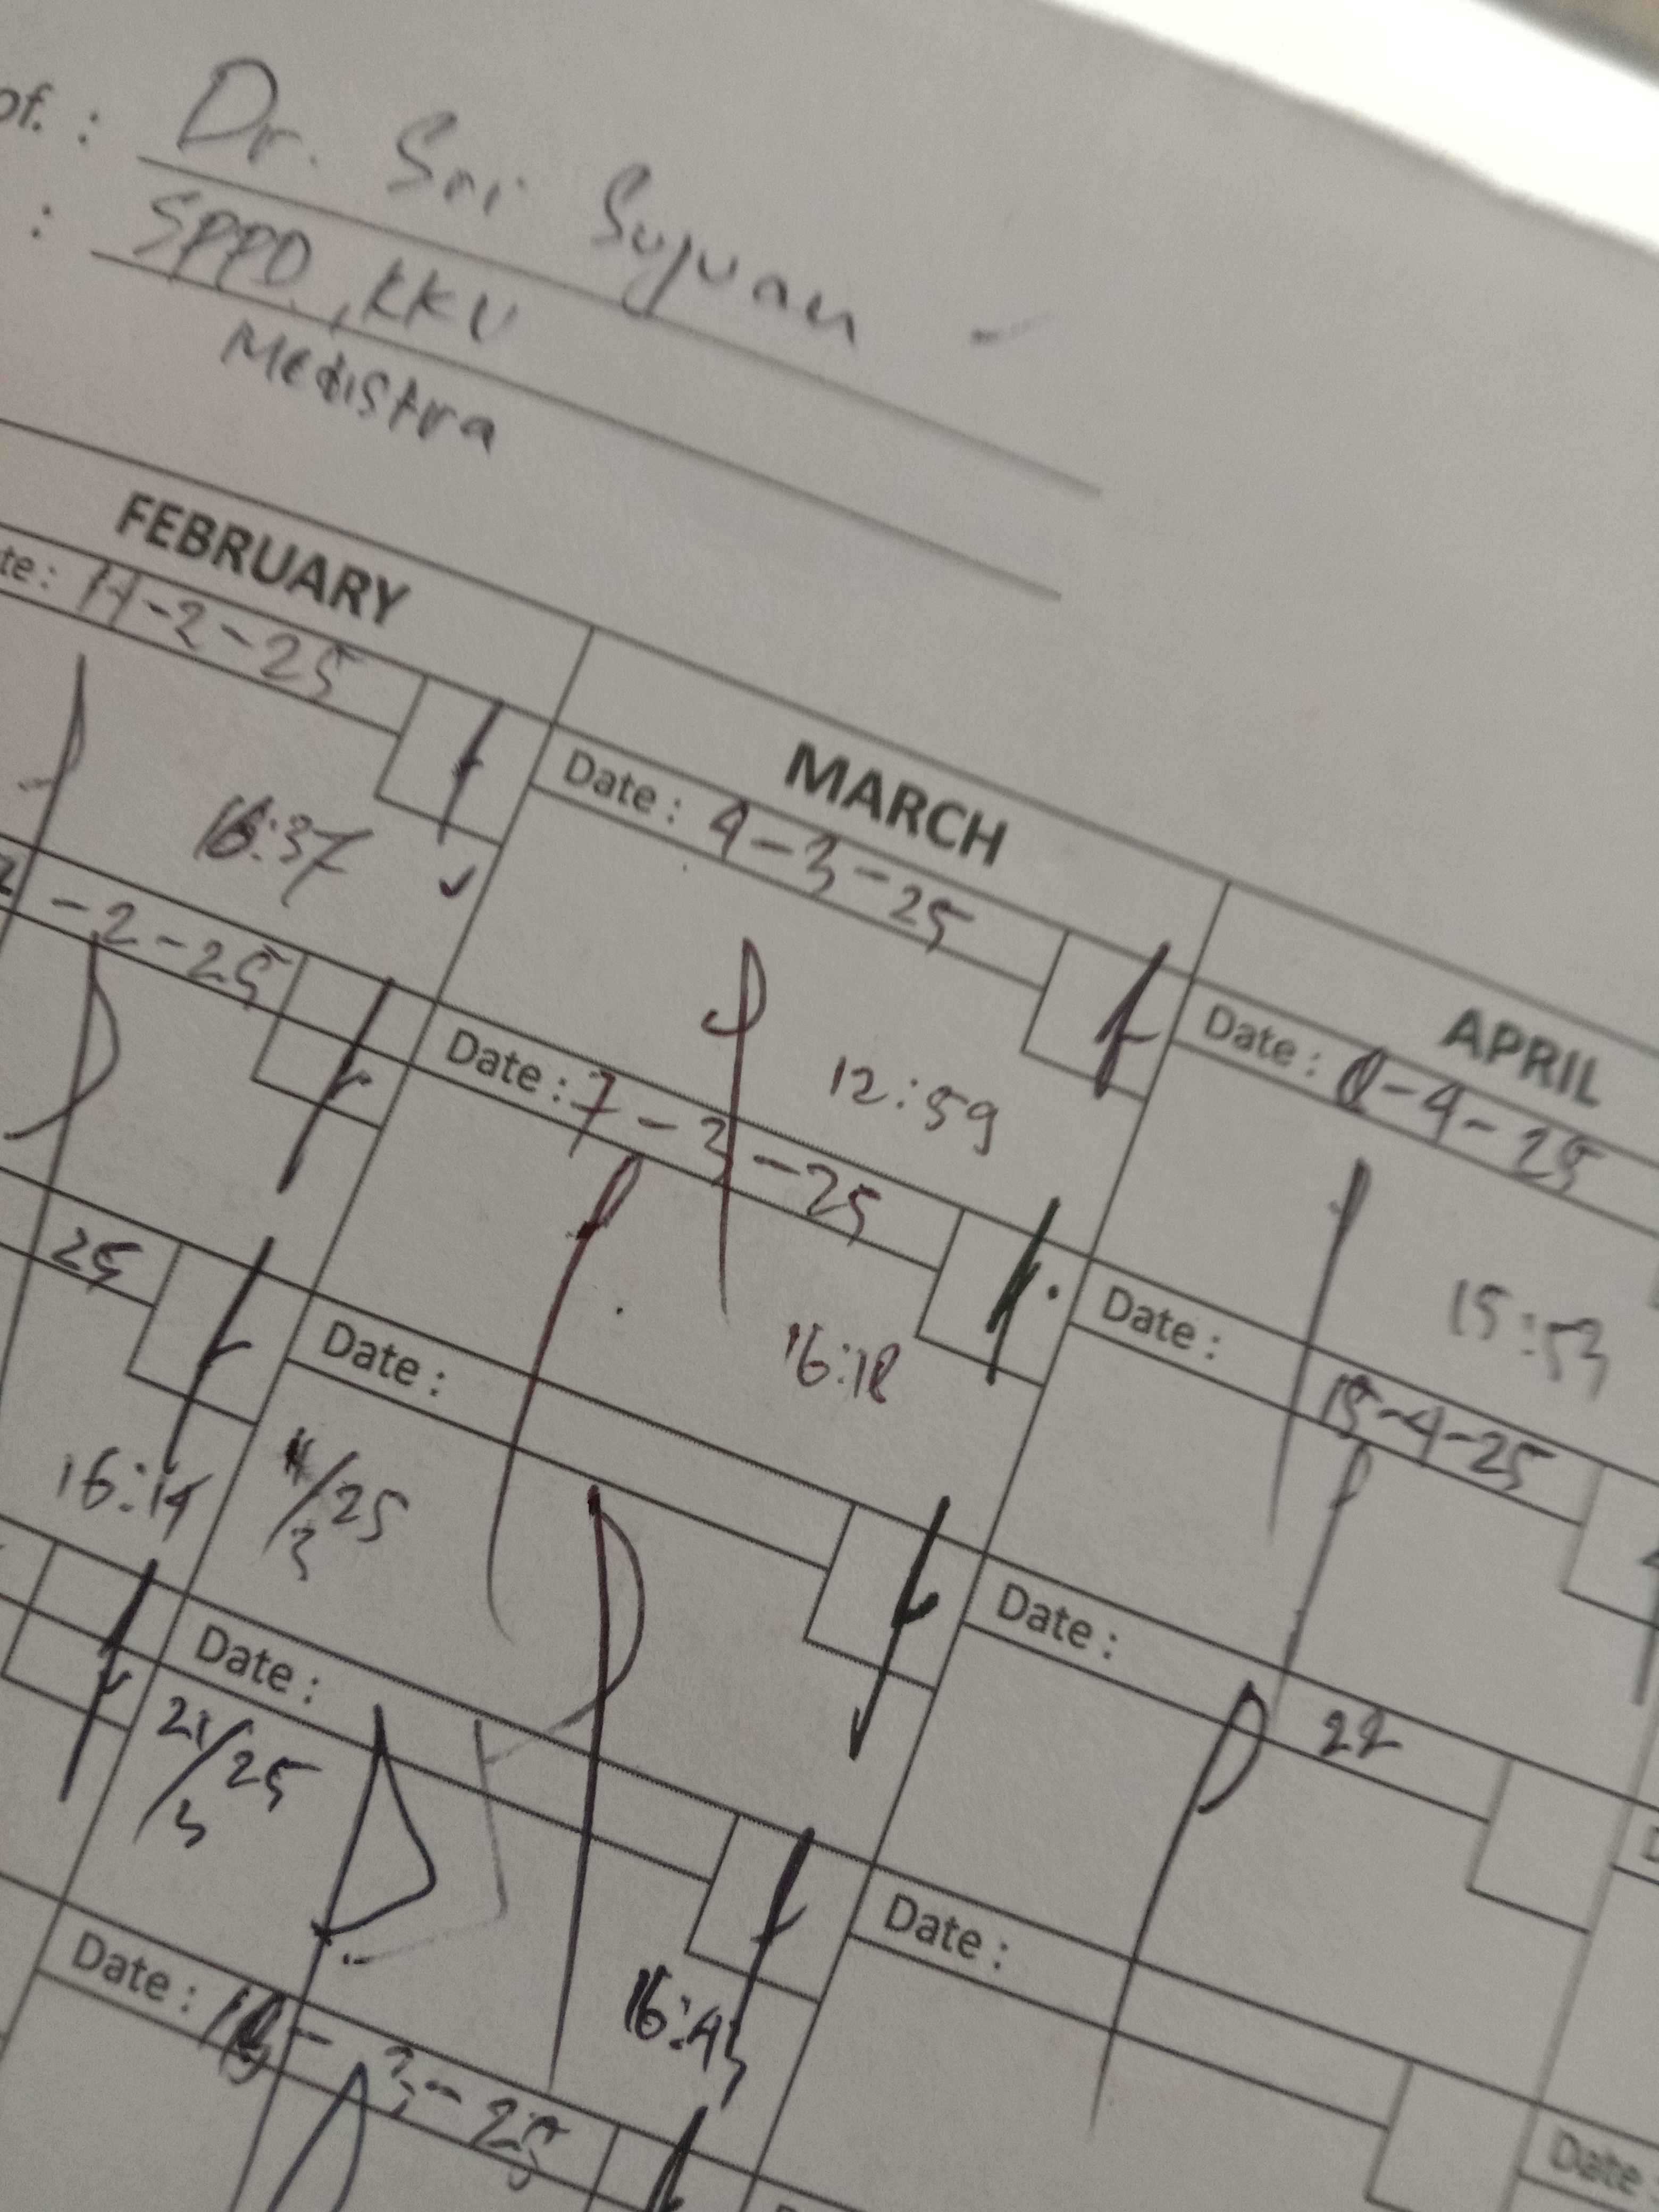 of. : Dr. Sri Suyuan
: SPPD, KKV
Medistra
FEBRUARY
MARCH
APRIL
te : 11-2-25
16:37
-2-25
25
16:14
Date : 4-3-25
12:59
Date : 7-3-25
16:18
Date :
11/25
3
Date :
21/25
3
16:43
Date : 18-3-25
Date : 8-4-25
15:53
Date :
15-4-25
Date :
22
Date :
Date :